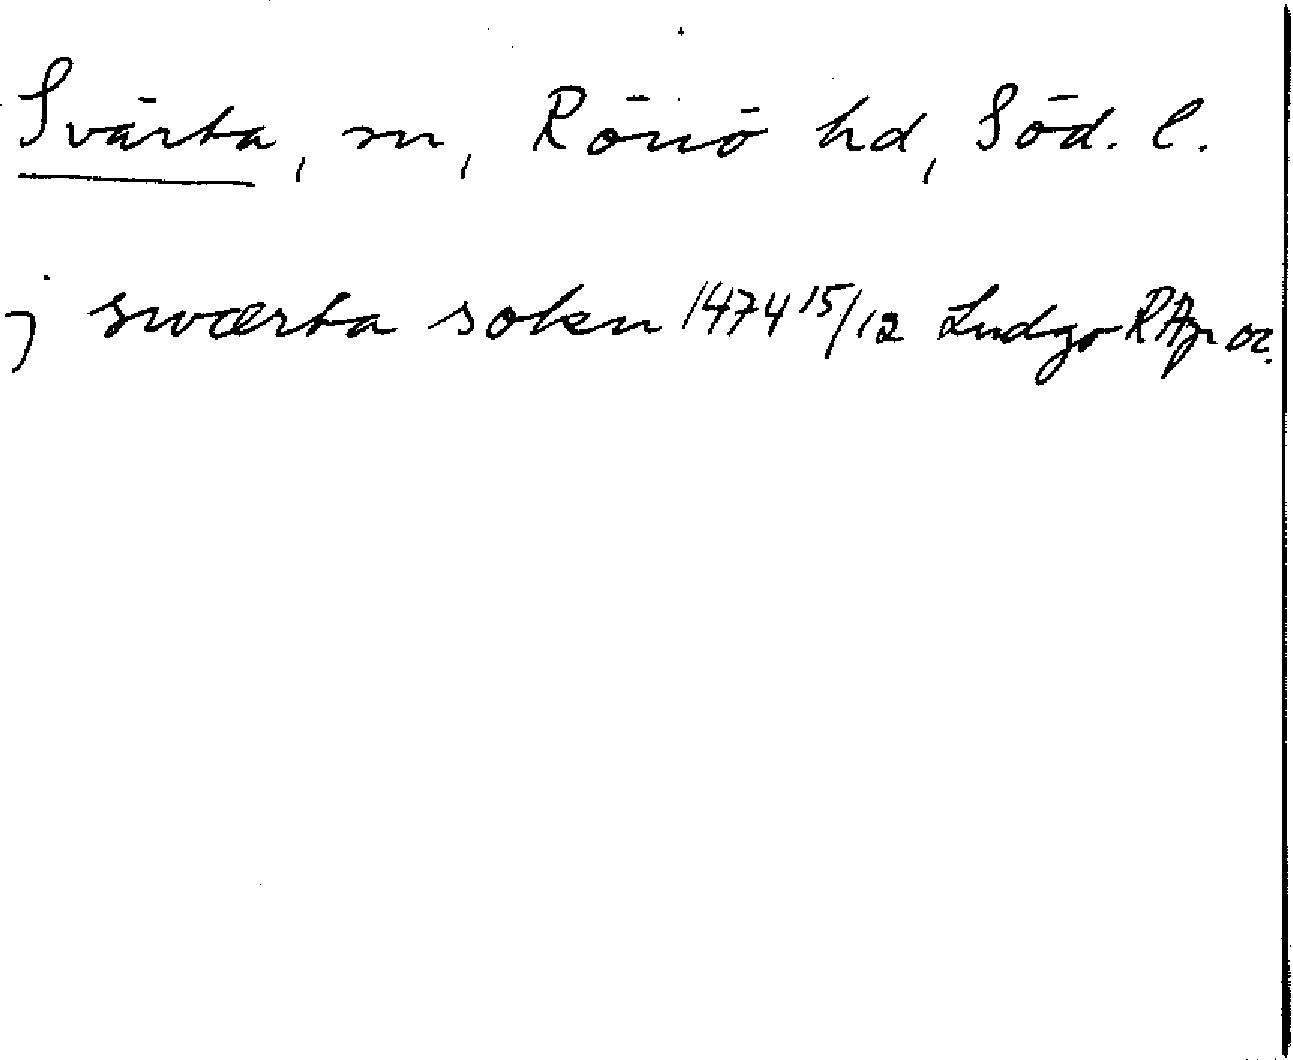 Svärta, sn, Rönö hd, Söd. l.
j swærta sokn 1474 15/12 Ludgo RAp or.